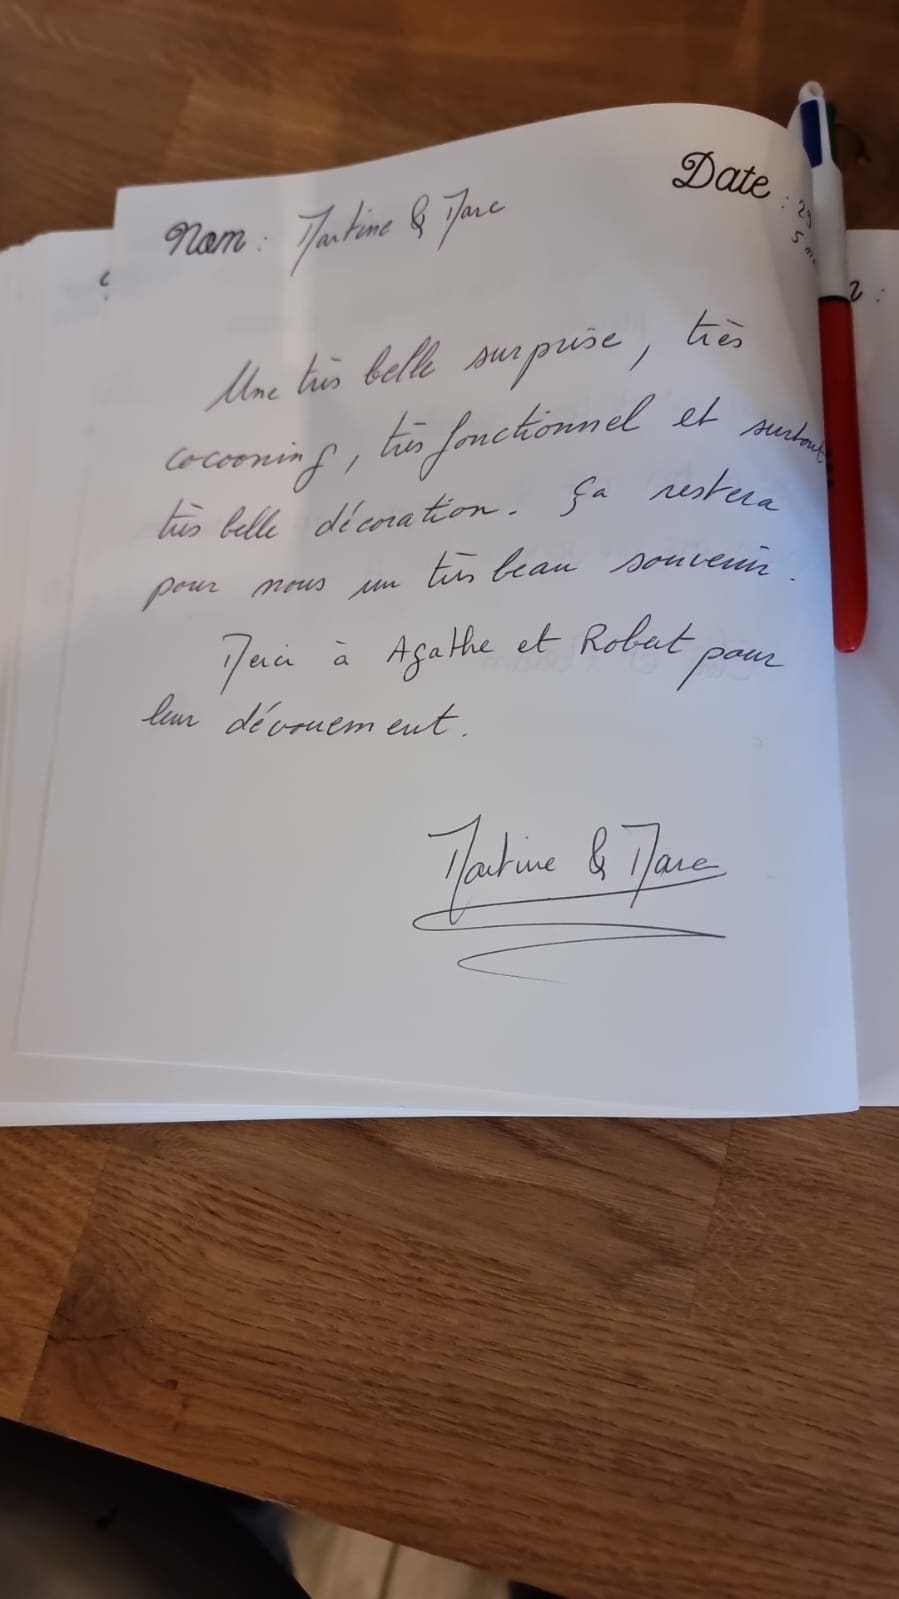 Date :
Nom : Martine & Marc
Une très belle surprise, très
cocooning, très fonctionnel et surtout
très belle décoration. Ça restera
pour nous un très beau souvenir.
Merci à Agathe et Robert pour
leur dévouement.
Martine & Marc